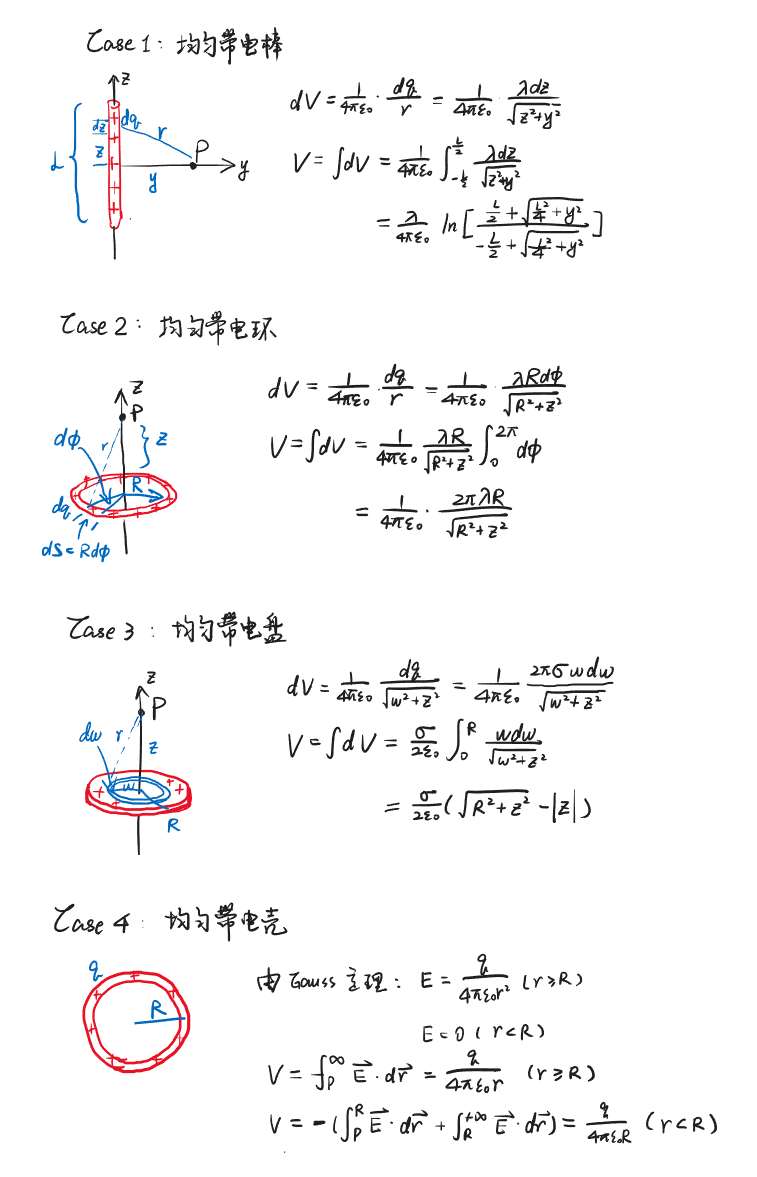 Case 1: 均匀带电棒
z
dq
dz
r
P
L
z
y
y
dV = \frac{1}{4πε₀} · \frac{dq}{r} = \frac{1}{4πε₀} · \frac{λdz}{\sqrt{z²+y²}}
V = ∫dV = \frac{1}{4πε₀} ∫_{-\frac{L}{2}}^{\frac{L}{2}} \frac{λdz}{\sqrt{z²+y²}}
= \frac{λ}{4πε₀} ln[\frac{\frac{L}{2}+\sqrt{\frac{L²}{4}+y²}}{-\frac{L}{2}+\sqrt{\frac{L²}{4}+y²}}]
Case 2: 均匀带电环
z
P
dϕ
r
z
R
dq
dS = Rdϕ
dV = \frac{1}{4πε₀} · \frac{dq}{r} = \frac{1}{4πε₀} · \frac{λRdϕ}{\sqrt{R²+z²}}
V = ∫dV = \frac{1}{4πε₀} \frac{λR}{\sqrt{R²+z²}} ∫_{0}^{2π} dϕ
= \frac{1}{4πε₀} · \frac{2πλR}{\sqrt{R²+z²}}
Case 3: 均匀带电盘
z
P
dw
r
z
w
R
dV = \frac{1}{4πε₀} \frac{dq}{\sqrt{w²+z²}} = \frac{1}{4πε₀} \frac{2πσwdw}{\sqrt{w²+z²}}
V = ∫dV = \frac{σ}{2ε₀} ∫_{0}^{R} \frac{wdw}{\sqrt{w²+z²}}
= \frac{σ}{2ε₀}(\sqrt{R²+z²} - |z|)
Case 4: 均匀带电壳
q
R
由 Gauss 定理: E = \frac{q}{4πε₀r²} (r≥R)
E = 0 (r<R)
V = ∫_{P}^{∞} \vec{E}·d\vec{r} = \frac{q}{4πε₀r} (r≥R)
V = -(∫_{P}^{R} \vec{E}·d\vec{r} + ∫_{R}^{+∞} \vec{E}·d\vec{r}) = \frac{q}{4πε₀R} (r<R)